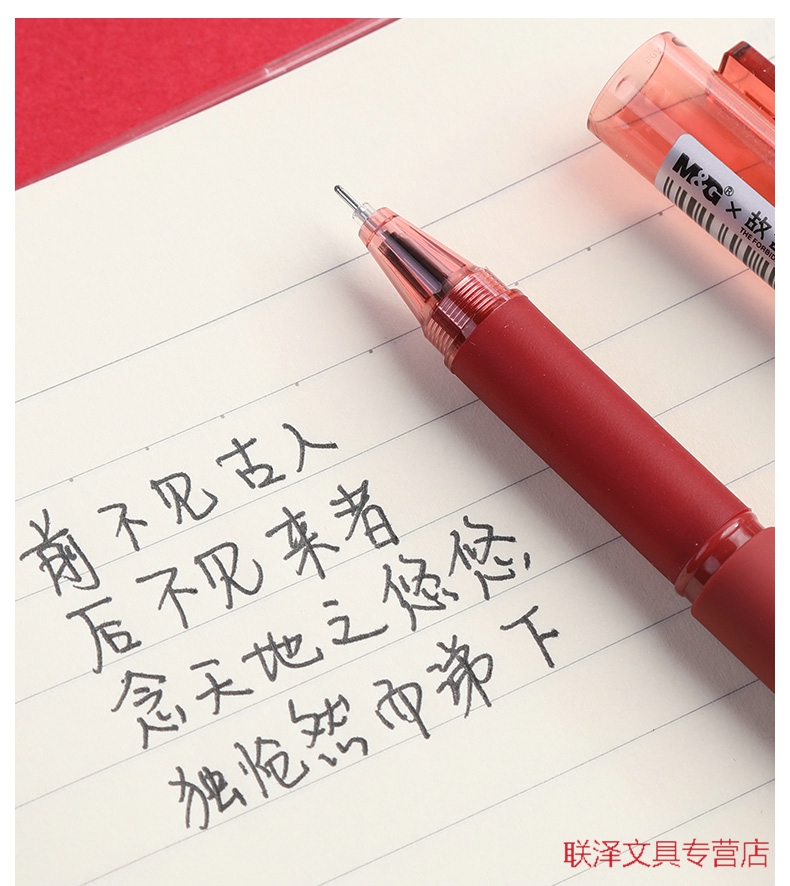 M&G® × 故
THE FORBID
前不见古人
后不见来者
念天地之悠悠
独怆然而涕下
联泽文具专营店